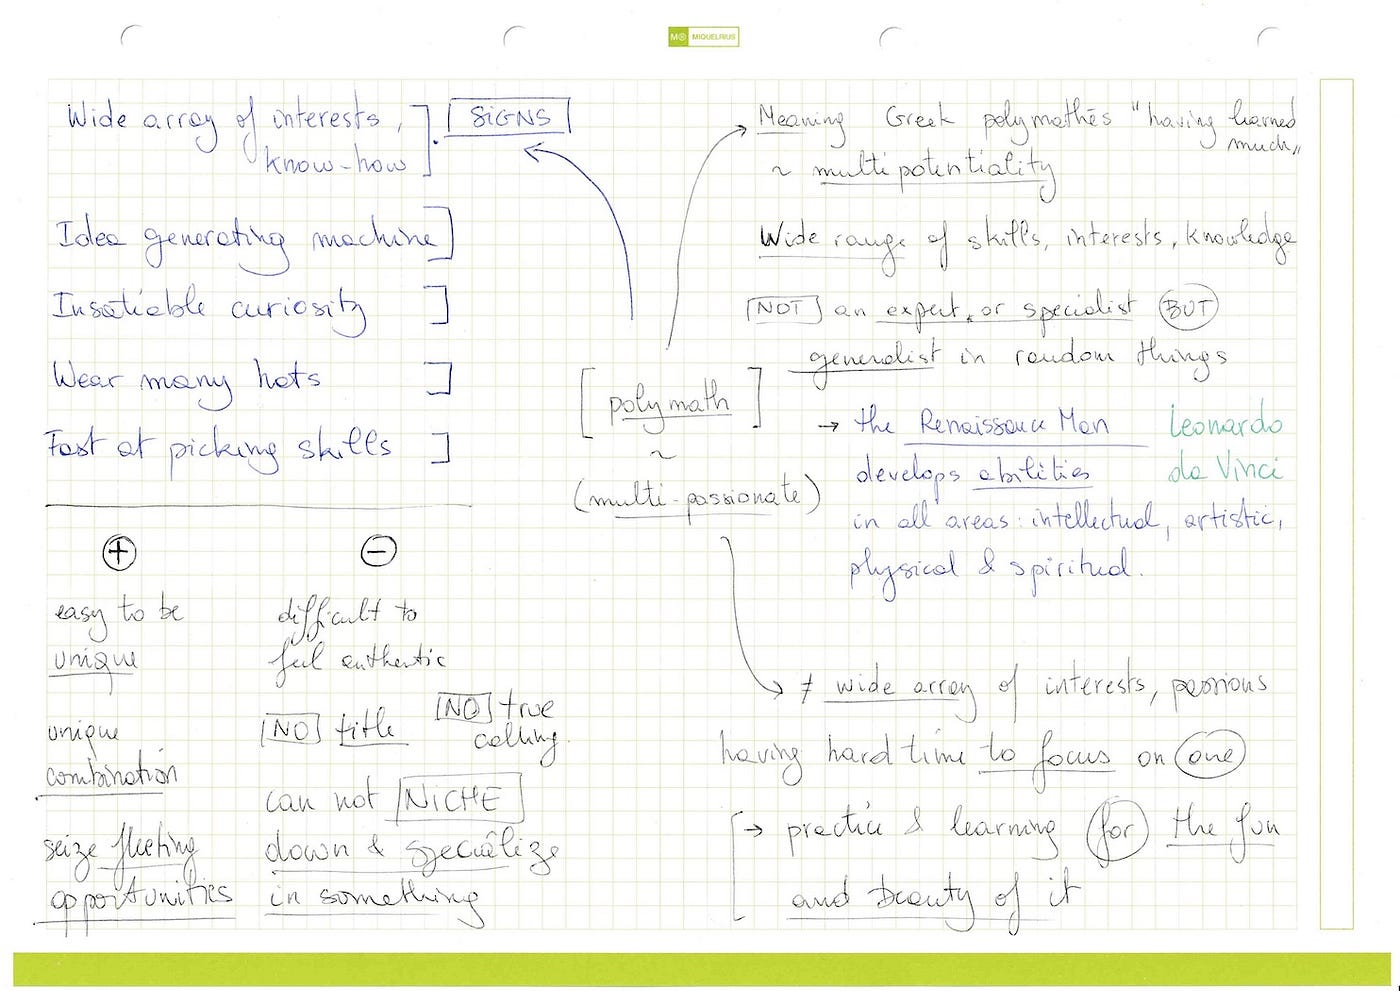 M® MIQUELRIUS
Wide array of interests,
know-how
SIGNS
Idea generating machine
Insatiable curiosity
Wear many hats
Fast at picking skills
+
easy to be
unique
unique
combination
seize fleeting
opportunities
−
difficult to
feel authentic
NO title
NO true
calling.
can not NICHE
down & specialize
in something
polymath
~
(multi-passionate)
Meaning Greek polymathēs "having learned
much"
~ multipotentiality
Wide range of skills, interests, knowledge
NOT an expert or specialist BUT
generalist in random things
→ the Renaissance Man
develops abilities
in all areas: intellectual, artistic,
physical & spiritual.
Leonardo
da Vinci
≠ wide array of interests, passions
having hard time to focus on one
→ practice & learning for the fun
and beauty of it